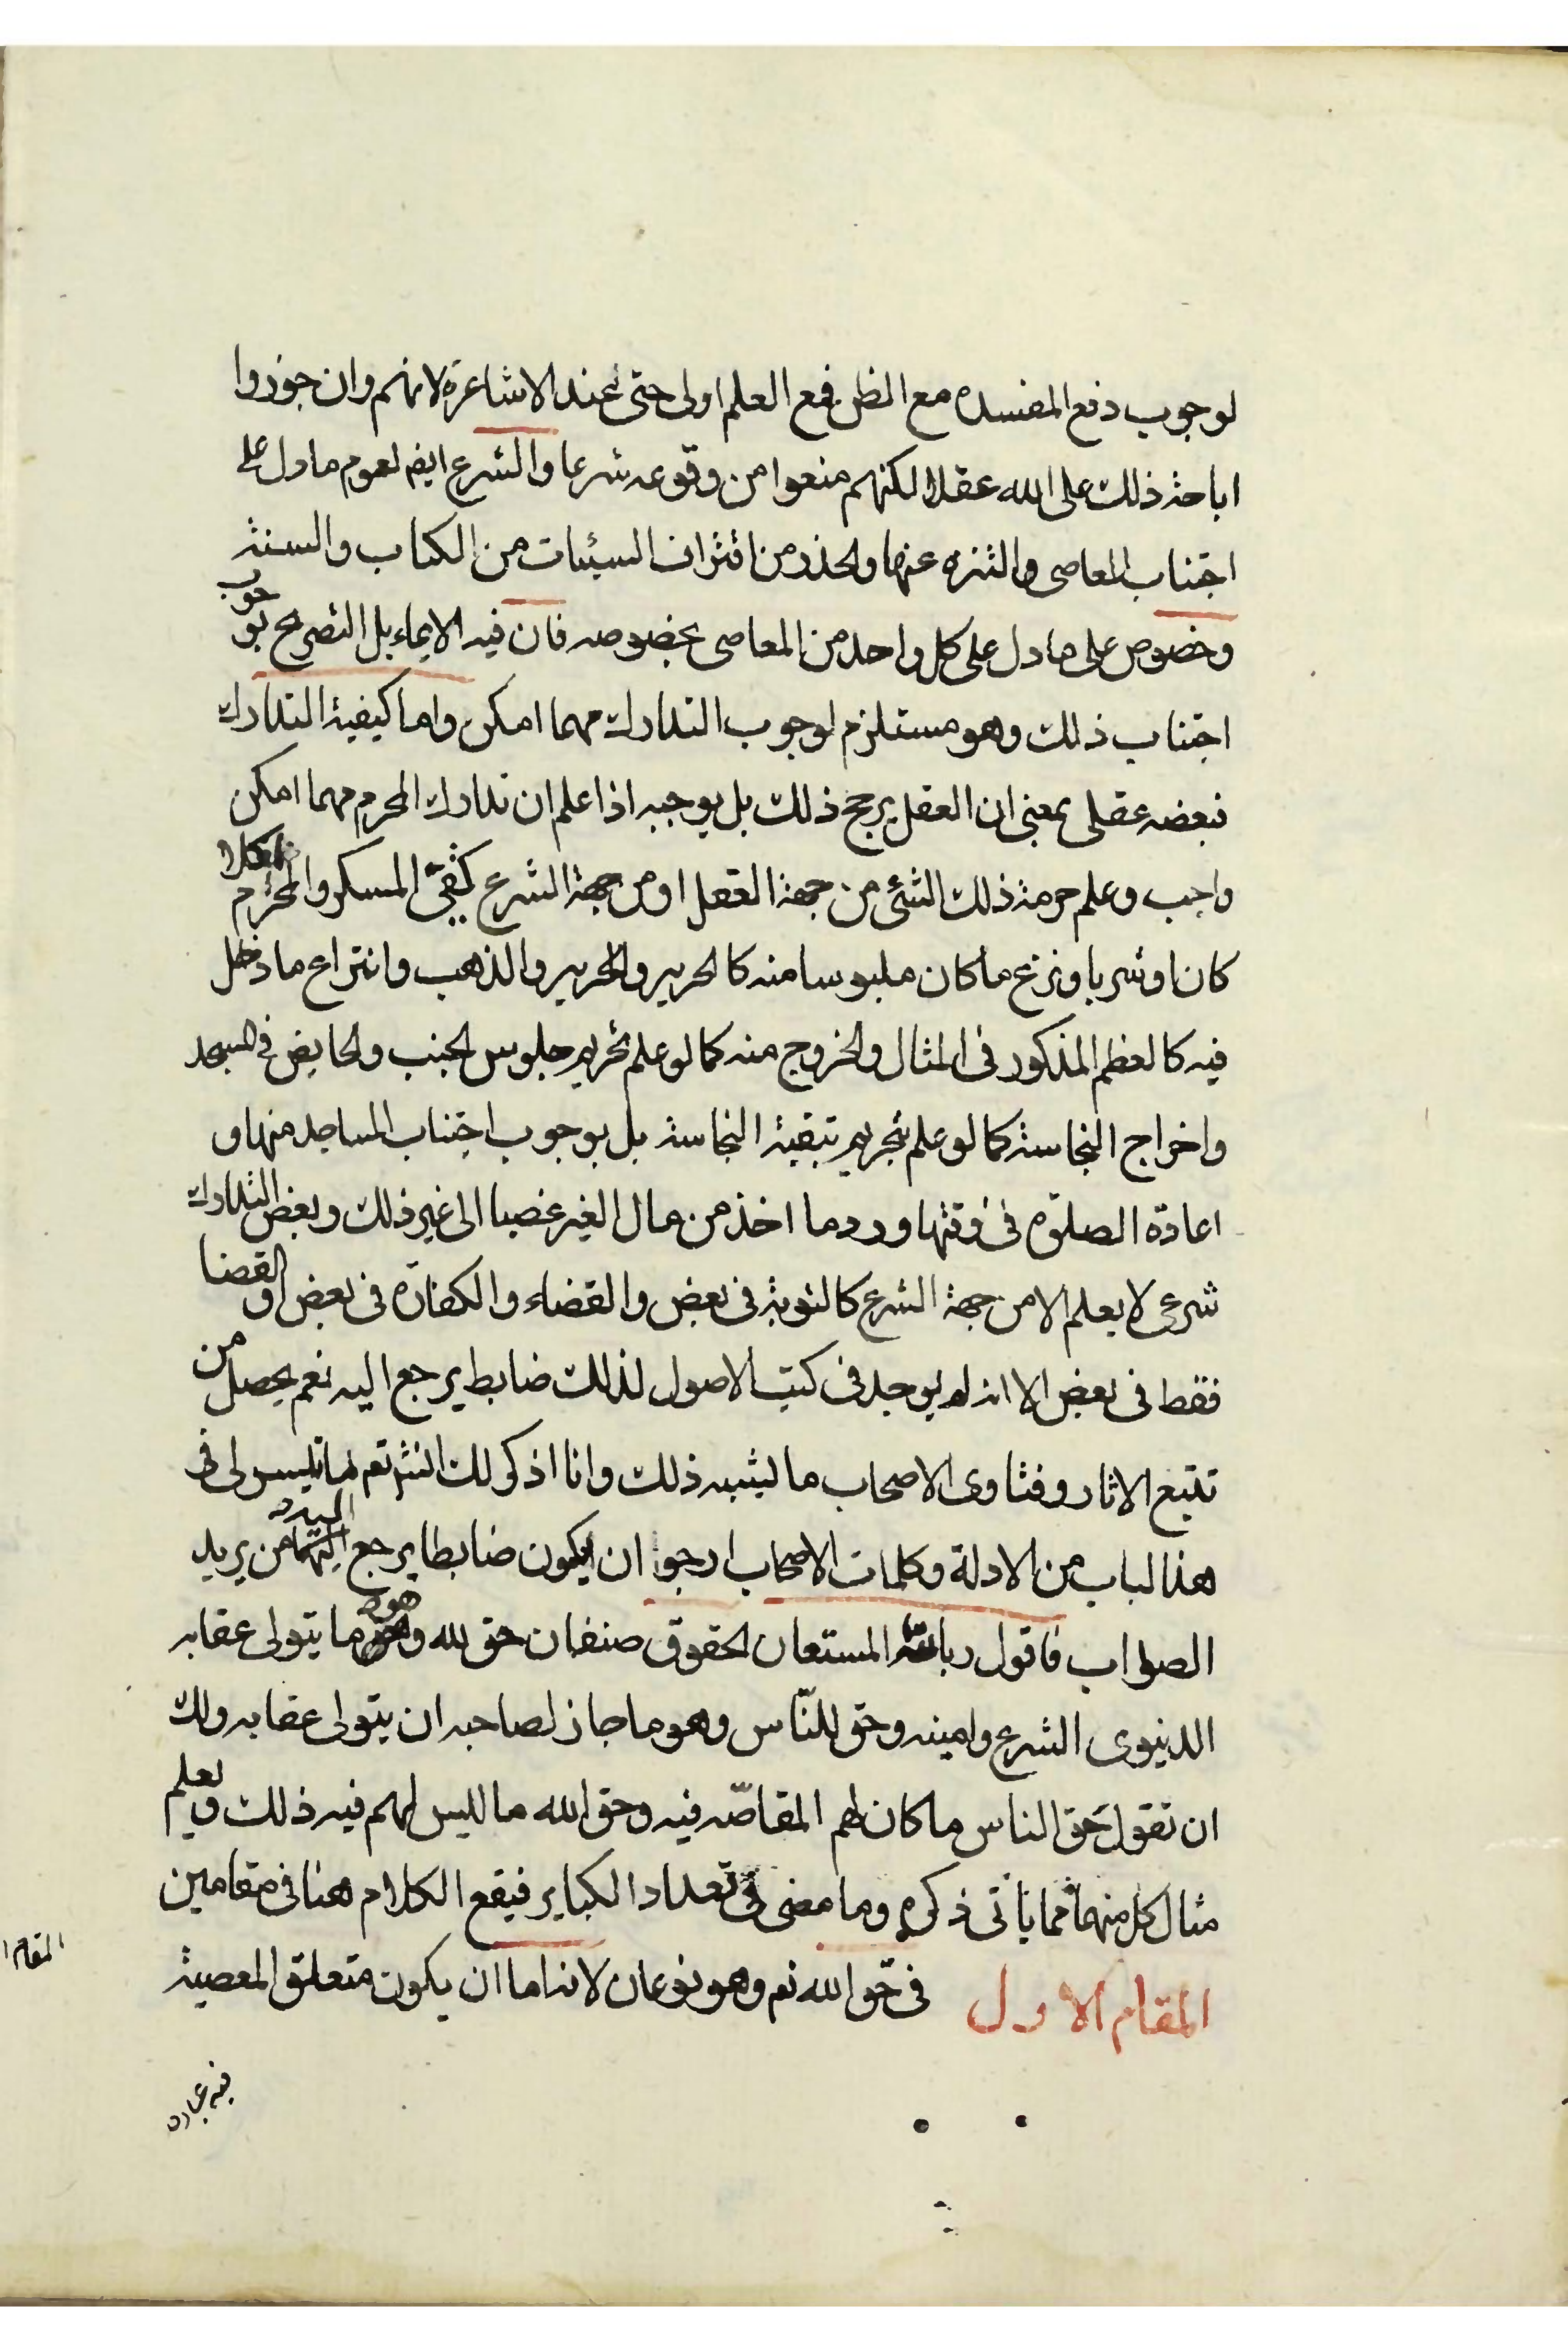 لوجوب دفع المفسده مع الظن فمع العلم اولى حتى عند الاشاعرة لانهم وان جوزوا
اباحة ذلك على الله عقلا لكنهم منعوا من وقوعه شرعا والشرع ايضا لعموم ما دل على
اجتناب المعاصى والتنزه عنها والحذر من اقتراف السيئات من الكتاب والسنة
وخصوص على ما دل على كل واحد من المعاصى بخصوصه فان فيه الايماء بل التصريح بوجوب
اجتناب ذلك وهو مستلزم لوجوب التدارك مهما امكن واما كيفية التدارك
فبعضه عقلى بمعنى ان العقل يرجح ذلك بل يوجبه اذا علم ان تدارك المحرم مهما امكن
واجب وعلم حرمة ذلك الشئ من جهة العقل او من جهة الشرع كقئ المسكر والمحرم اكلا
كان او شربا ونزع ما كان ملبوسا منه كالحرير والحرير والذهب وانتزاع ما دخل
فيه كالعظم المذكور فى المثال والخروج منه كما لو علم تحريم جلوس الجنب والحايض فى المسجد
واخراج النجاسة كما لو علم تحريم تبقية النجاسة بل بوجوب اجتناب المساجد منها و
اعادة الصلوة فى وقتها ورد ما اخذ من مال الغير غصبا الى غير ذلك وبعض التدارك
شرعى لا يعلم الا من جهة الشرع كالتوبة فى بعض والقضاء والكفارة فى بعض او القضا
فقط فى بعض الا انه لم يوجد فى كتب الاصول لذلك ضابط يرجع اليه نعم يحصل من
تتبع الاثار وفتاوى الاصحاب ما يشبه ذلك وانا اذكر لك انشاء تعم ما تيسر لى فى
هذا الباب من الادلة وكلمات الاصحاب ارجو ان يكون ضابطا يرجع اليه من يريد
الصواب فاقول وبالله المستعان الحقوق صنفان حق لله وهو ما يتولى عقابه
الدنيوى الشرع وامينه وحق للناس وهو ما جاز لصاحبه ان يتولى عقابه ولك
ان تقول حق الناس ما كان لهم المقاصّه فيه وحق الله ما ليس لهم فيه ذلك ويعلم
مثال كل منهما مما يأتى ذكره وما مضى فى تعداد الكباير فيقع الكلام هنا فى مقامين
المقام الاول فى حق الله تعم وهو نوعان لانه اما ان يكون متعلق المعصية
فيه عبادة
المقام ا